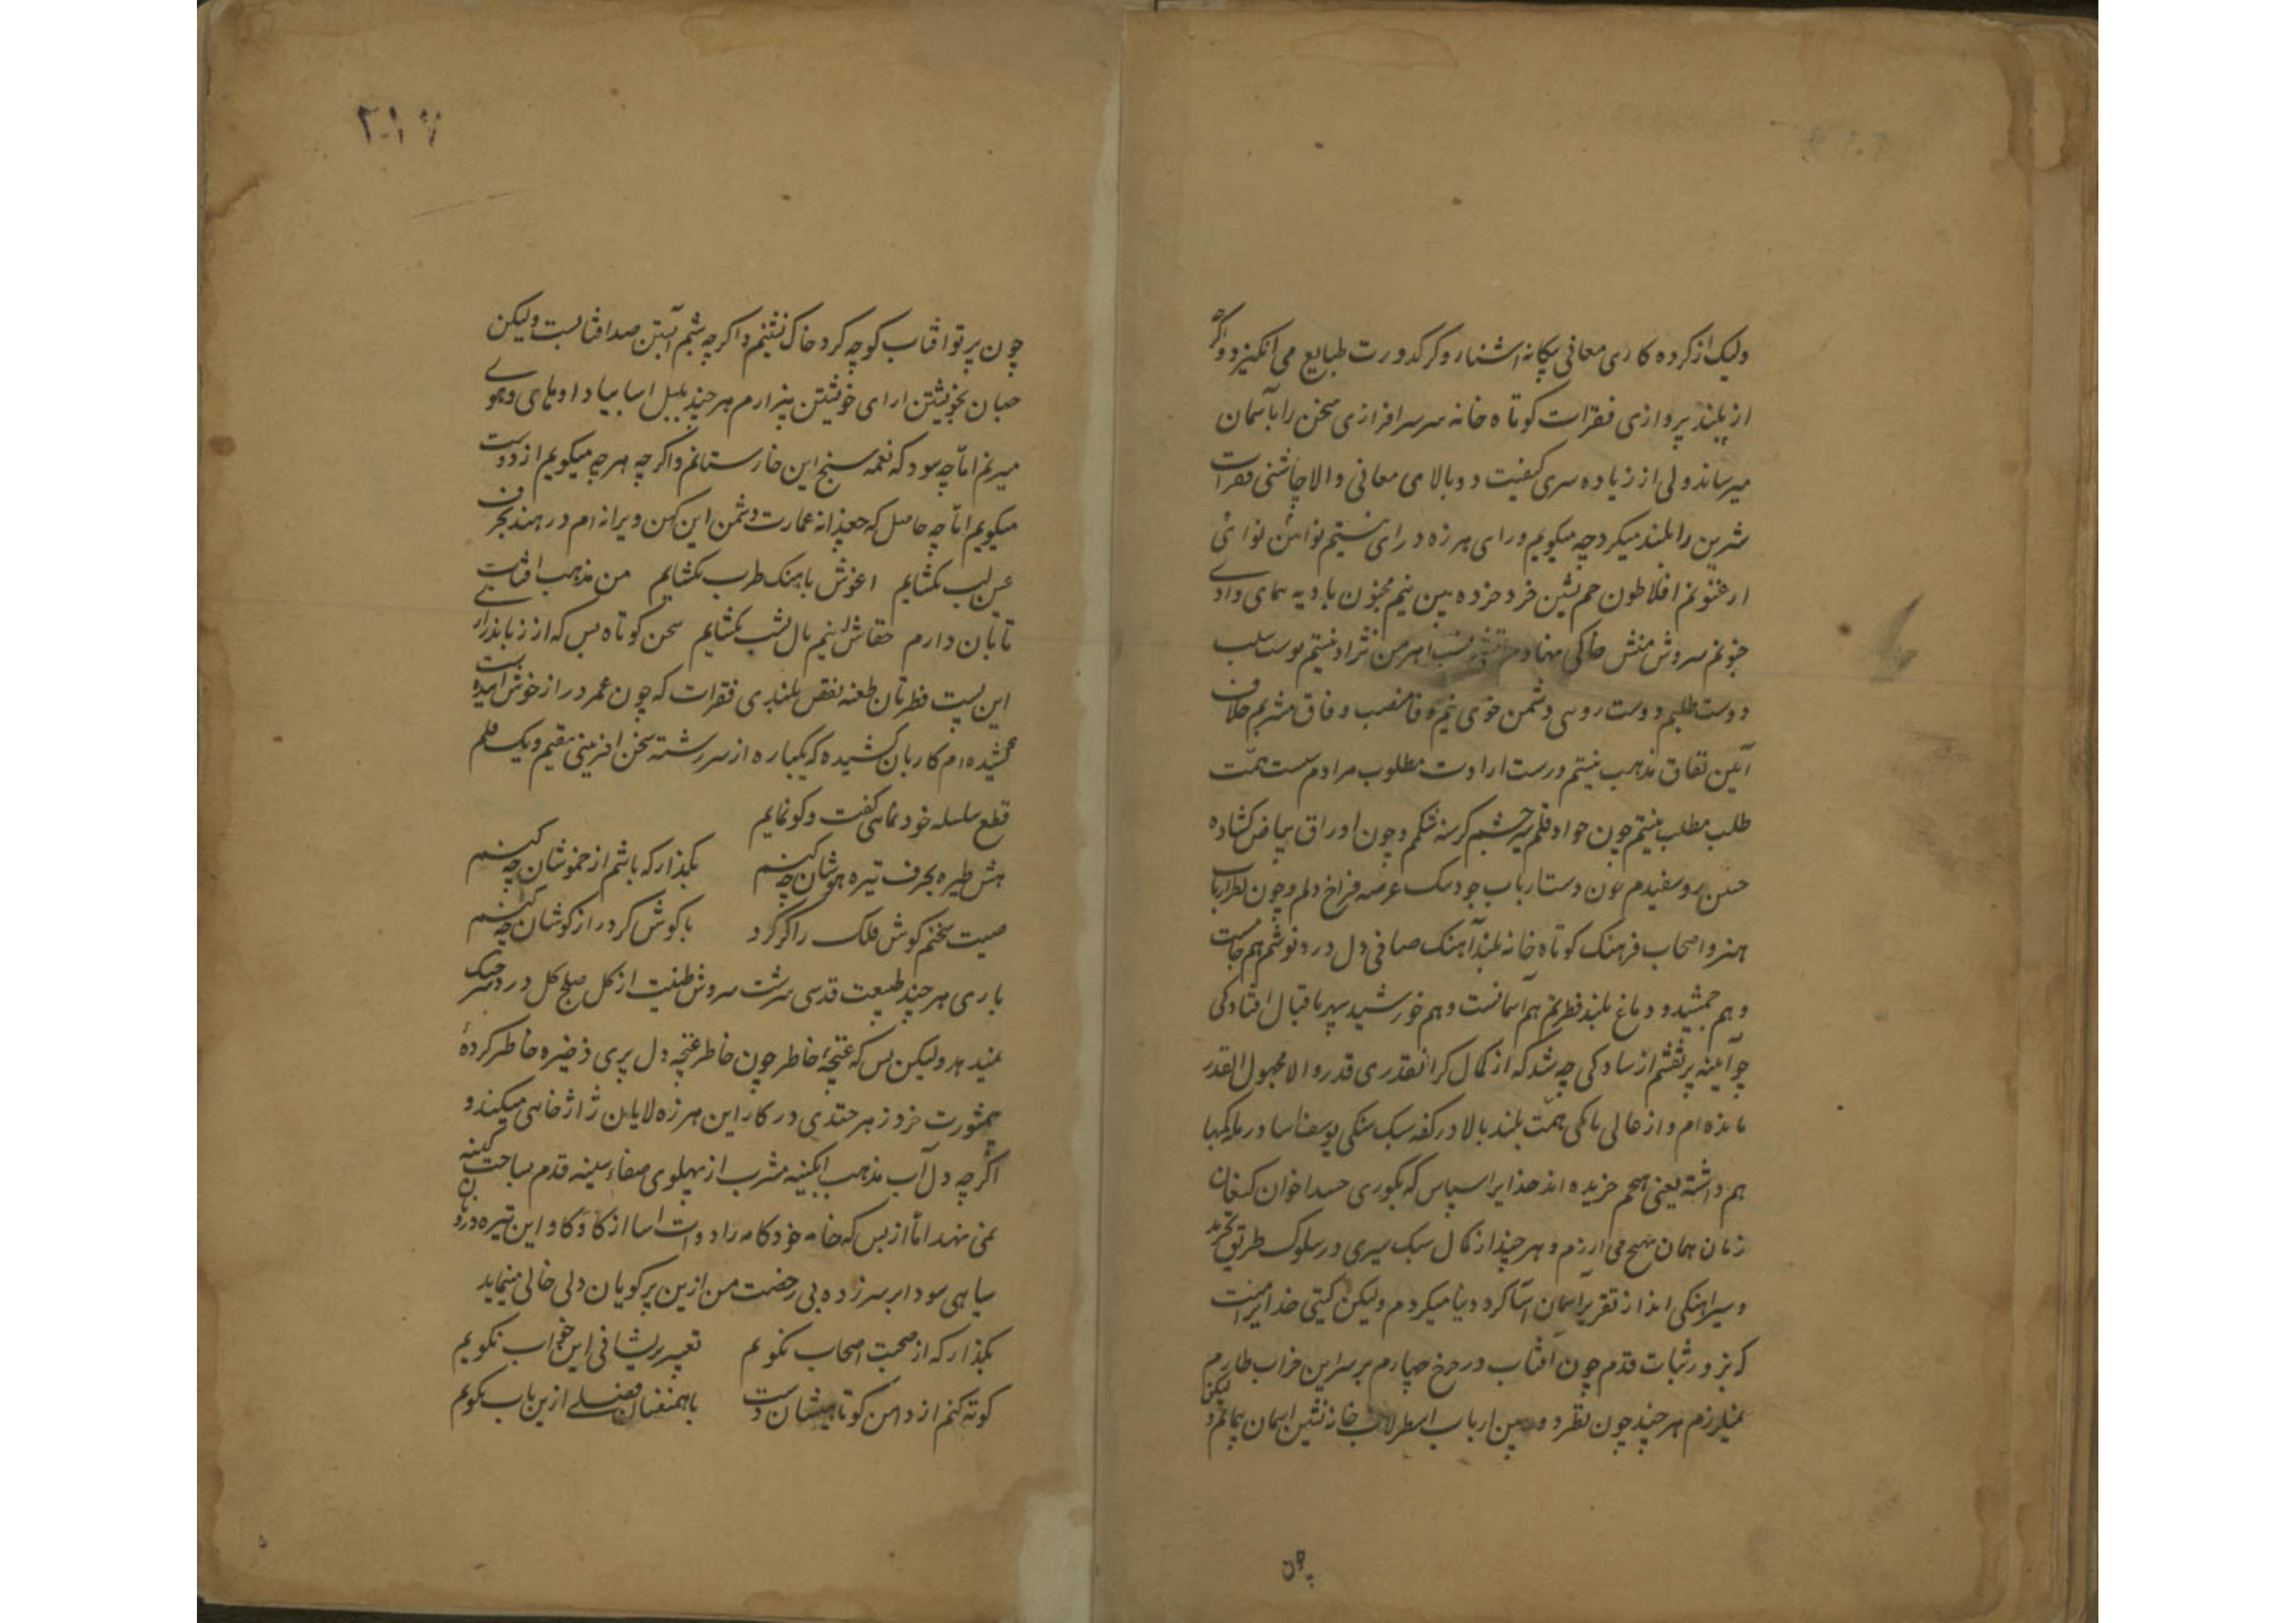 ولیک از کرده کاری معانی بیکانه اشنا رو کر کدورت طبایع می انکیزد و اکرچه
از بلند پروازی فقرات کوتاه خانه سر سرافرازی سخن را بآسمان
میرساند ولی از زیاده سری کیفیت دوبالای معانی والا چاشنی فقرات
شرین را بلند میکرد چه میکویم ورای هرزه درای نیستم نوائن نوائ
ارغنونم افلاطون خم نشین خرد خرده بین نیم مجنون بادیه پیمای وادی
جنونم سروش منش خاکی نهادم اهرمن نژاد نیستم یوسف سلب
دوست طلبم دوست روی دشمن خوی نیم وفا منصب وفاق مشربم خلاف
آیین نفاق مذهب نیستم درست ارادت مطلوب مرادم سست همت
طلب مطلب نیستم چون جواد قلم سیر چشم کرسنه شکم و چون اوراق بیاض کشاده
جبین رو سفیدم چون دست ارباب جود عرصه فراخ دلم و چون نظر ارباب
هنر و اصحاب فرهنک کوتاه خانه بلند آهنک صافی دل درد نوشم هم جامست
و هم جمشید و دماغ بلند فطرتم هم آسمانست و هم خورشید سپهر باقبال افتادکی
چو آیینه پر نقشم از سادکی چه شد که از کمال کرانقدری قدر والا مجهول القدر
مانده ام و از خالی همت بلند بالا در کفه سبک سنکی یوسف اسا در بلد کم بها
هم داشته یعنی بهیچم خریده اند خدایرا سپاس که بکوری حسد اخوان کنعان
زمان همان بهیچ می ارزم و هر چند از کمال سبک سیری در سلوک طریق تجرد
و سیر آهنکی انداز تقریر آسمان آسا کرد دنیا میکردم ولیکن کیتی خدایرا منت
که بزور ثبات قدم چون آفتاب در چرخ چهارم بر سر این خراب طارم
نمیلرزم هر چند چون نظر دوربین ارباب اسطرلاب خانه نشین اسمان پیمایم و لیکن
چون
۲۱۷
چون پرتو افتاب کوچه کرد خاک نشینم و اکرچه شبم آبستن صد افتابست ولیکن
جهان بخویشتن ارای خویشتن بیزارم هر چند بلبل اسا بیاد او های و هوی
میزنم اما چه سود که نغمه سنج این خارستانم و اکرچه هر چه میکویم از دوست
میکویم اما چه حاصل که جغدانه عمارت دشمن این کهن ویرانه ام در هند بحرف
عبس لب نکشایم اغوش باهنک طرب نکشایم من مذهب افتاب
تابان دارم خفاش نیم بال بشب نکشایم سخن کوتاه بس که از زبان درازی
این پست فطرتان طعنه نقص بلندی فقرات که چون عمر دراز خوش آینده است
کشیده ام کار بان کشیده که یکباره از سر رشته سخن افرینی مقیم و یک قلم
قطع سلسله خودنمایی کفت و کو نمایم
هش طیره بحرف تیره هوشان چه کنم بکذار که باشم از خموشان چه کنم
صیت سخنم کوش فلک را کر کرد با کوش کر دراز کوشان چه کنم
باری هر چند طبیعت قدسی سرشت سروش طینت از کل صلح کل در دسر جنک
نمیدهد ولیکن بس که غنچهٔ خاطر چون خاطر غنچه دل پری ذخیره خاطر کرده
بمشورت خرد زهر خندی در کار این هرزه لایان ژاژخایی میکند و
اکرچه دل آب مذهب ابکینه مشرب از پهلوی صفاء سینه قدم بساحت کینه
نمی نهد اما از بس که خامه خودکامه را دوات اسا از کاوکاو این تیره درونان
سیاهی سودا بر سر زده بی رخصت من ازین پرکویان دلی خالی مینماید
بکذار که از صحبت اصحاب نکویم تعبیر پریشانی این خواب نکویم
کوته کنم از دامن کوتاهیشان دست با همنفسان فصلی ازین باب نکویم